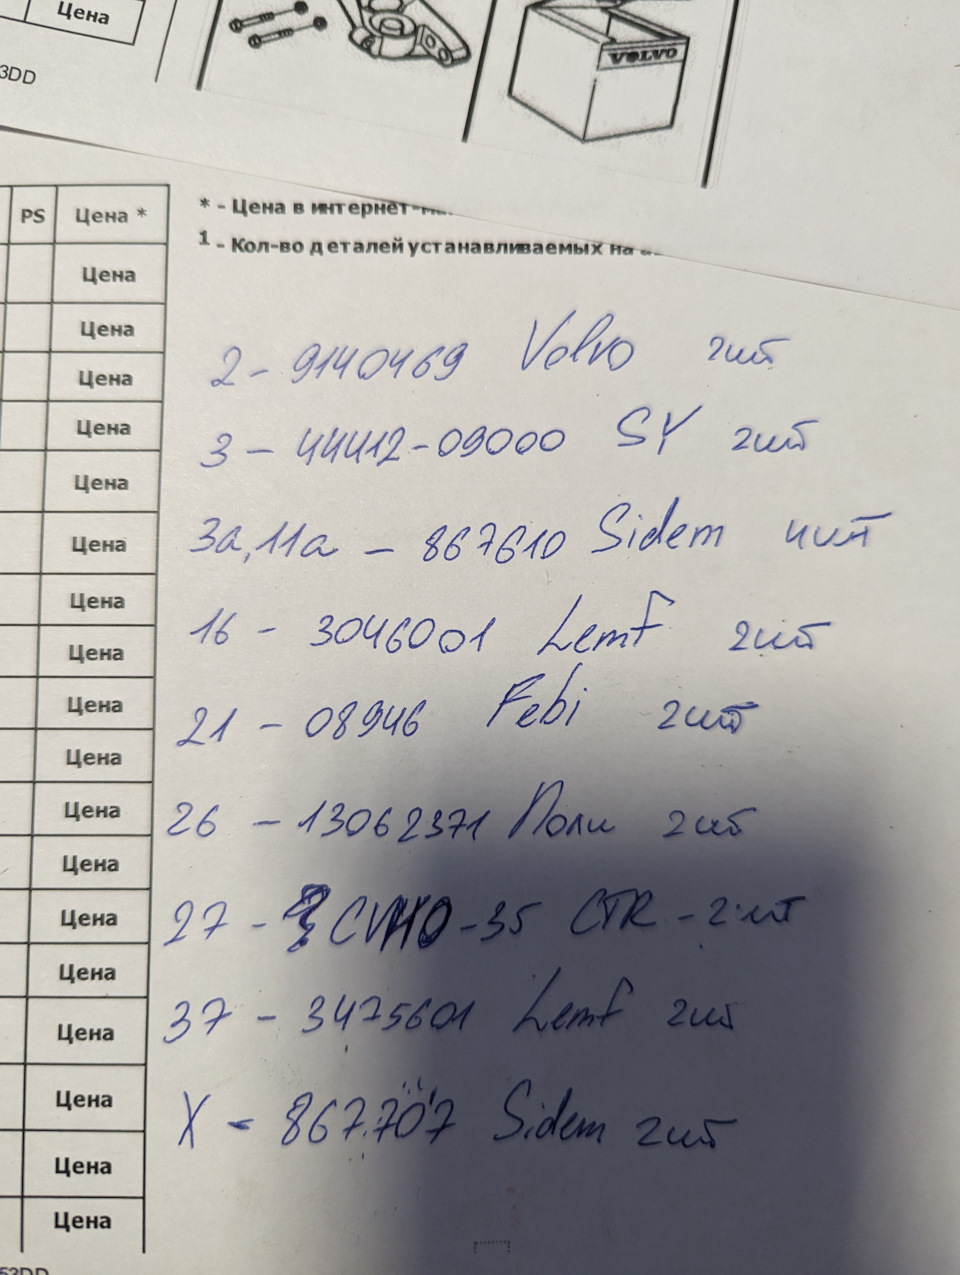 Цена
3DD
VOLVO
PS Цена *
* - Цена в интернет-
1 - Кол-во деталей устанавливаемых на
Цена
Цена
Цена
Цена
Цена
Цена
Цена
Цена
Цена
Цена
Цена
Цена
Цена
Цена
Цена
Цена
Цена
Цена
2 - 9140469 Volvo 2шт
3 - 44412-09000 SY 2шт
3а, 11а - 867610 Sidem 4шт
16 - 3046001 Lemf 2шт
21 - 08946 Febi 2шт
26 - 13062371 Поли 2шт
27 - CVHO-35 CTR - 2шт
37 - 3475601 Lemf 2шт
X - 867.707 Sidem 2шт
53DD